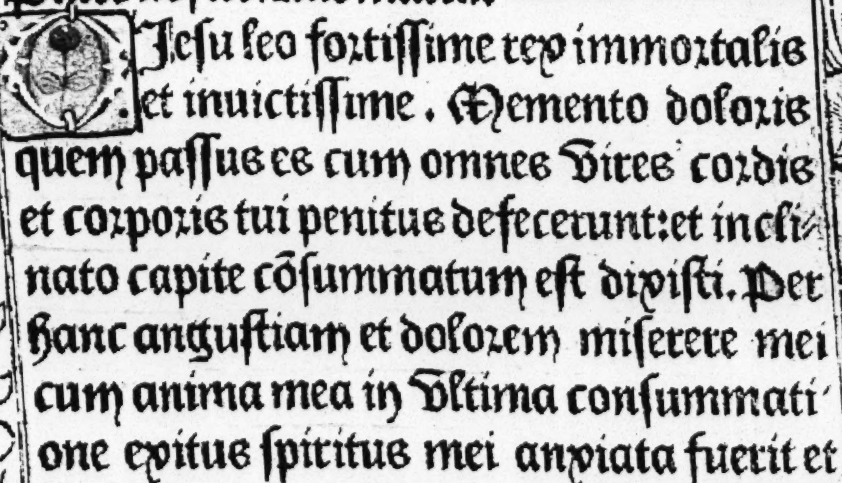 O Jesu leo fortissime rex immortalis
et inuictissime. Memento doloris
quem passus es cum omnes vires cordis
et corporis tui penitus defecerunt: et incli-
nato capite cõsummatum est dixisti. Per
hanc angustiam et dolorem miserere mei
cum anima mea in vltima consummati-
one exitus spiritus mei anxiata fuerit et